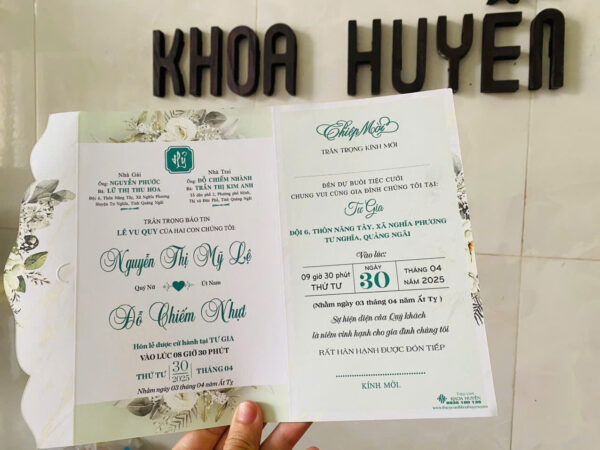 KHOA HUYỀN
Nhà Gái
Ông: NGUYỄN PHƯỚC
Bà: LÊ THỊ THU HOA
Đội 6, Thôn Năng Tây, Xã Nghĩa Phương
Huyện Tư Nghĩa, Tỉnh Quảng Ngãi
Nhà Trai
Ông: ĐỖ CHIẾM NHÀNH
Bà: TRẦN THỊ KIM ANH
TRÂN TRỌNG BÁO TIN
LỄ VU QUY CỦA HAI CON CHÚNG TÔI:
Nguyễn Thị Mỹ Lệ
Quý Nữ Út Nam
Đỗ Chiếm Nhựt
Hôn lễ được cử hành tại TƯ GIA
VÀO LÚC 08 GIỜ 30 PHÚT
THỨ TƯ 30 THÁNG 04
2025
Nhằm ngày 03 tháng 04 năm Ất Tỵ
Thiệp Mời
TRÂN TRỌNG KÍNH MỜI
ĐẾN DỰ BUỔI TIỆC CƯỚI
CHUNG VUI CÙNG GIA ĐÌNH CHÚNG TÔI TẠI:
Tư Gia
ĐỘI 6, THÔN NĂNG TÂY, XÃ NGHĨA PHƯƠNG
TƯ NGHĨA, QUẢNG NGÃI
Vào lúc:
09 giờ 30 phút NGÀY THÁNG 04
THỨ TƯ 30 NĂM 2025
(Nhằm ngày 03 tháng 04 năm Ất Tỵ)
Sự hiện diện của Quý khách
là niềm vinh hạnh cho gia đình chúng tôi
RẤT HÂN HẠNH ĐƯỢC ĐÓN TIẾP
KÍNH MỜI.
KHOA HUYỀN